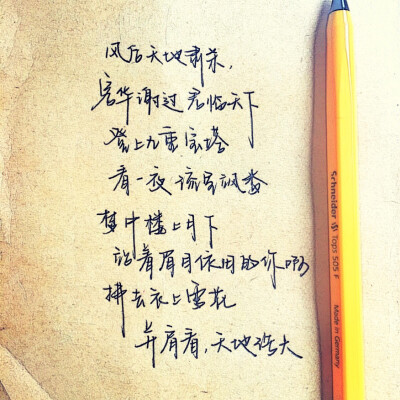 风后天地肃杀,
容华谢过君临天下
登上九重宝塔
看一夜流星飒沓
梦中楼上月下
站着眉目依旧的你啊
拂去衣上雪花
并肩看,天地浩大
Schneider Tops 505 F
Made in Germany